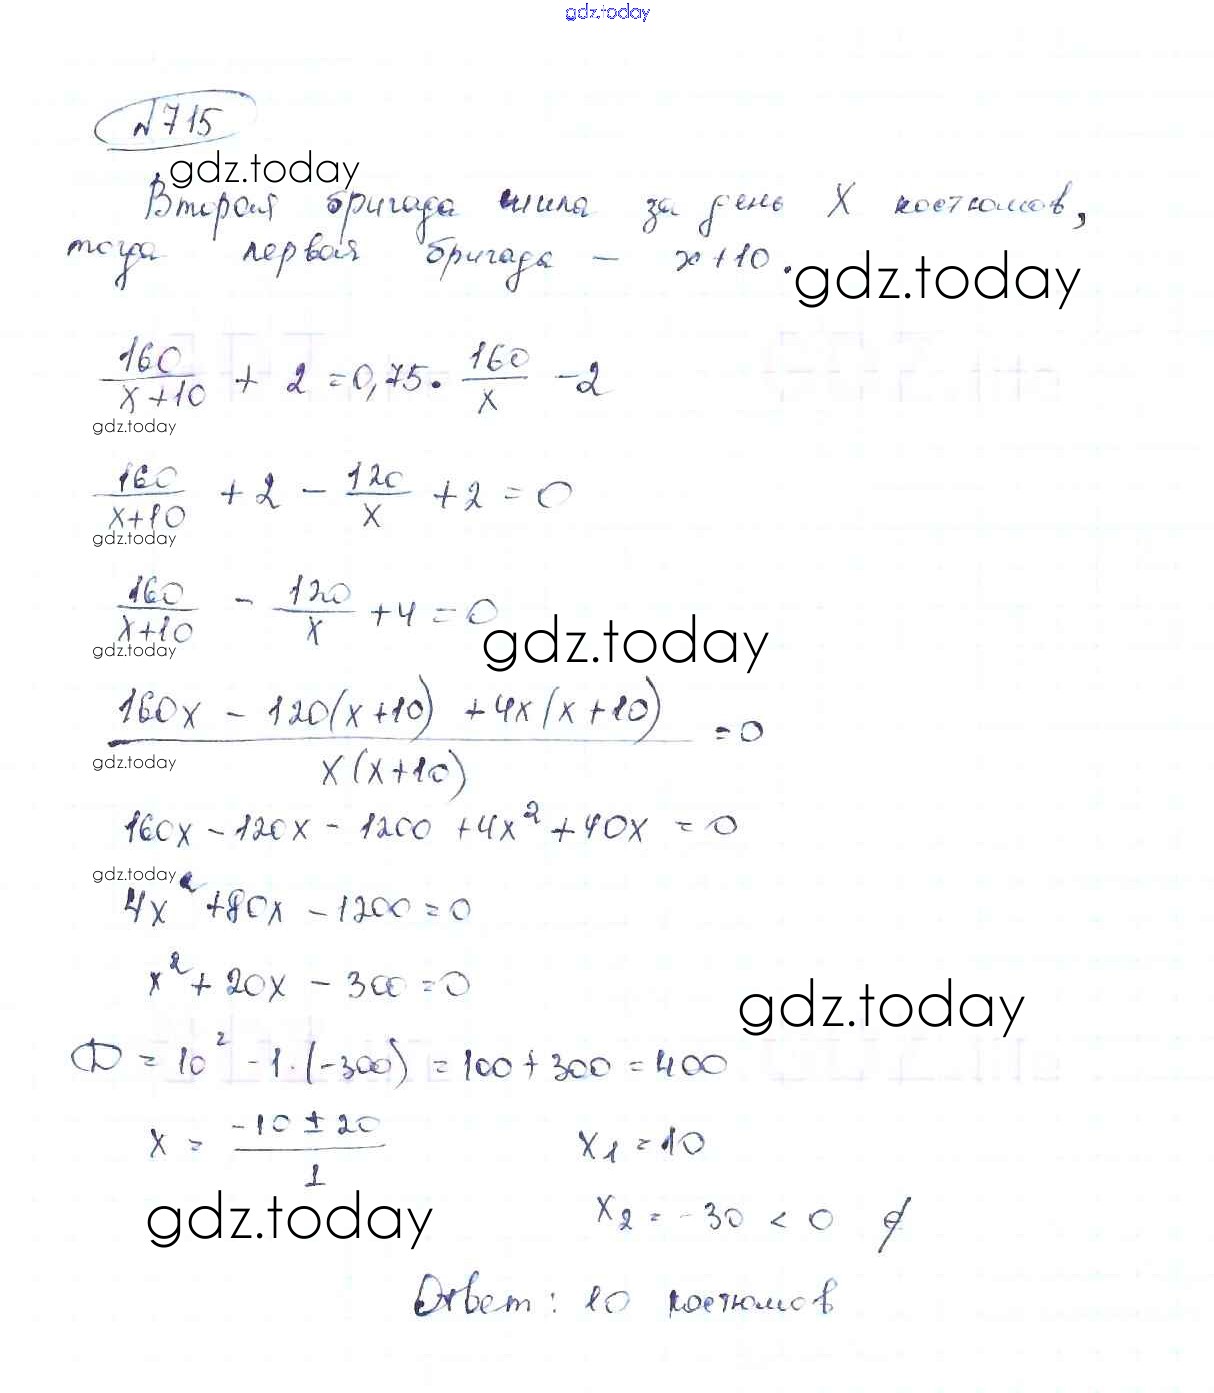 gdz.today
№715
gdz.today
Вторая бригада шила за день x костюмов,
тогда первая бригада – x+10.
gdz.today
160/(x+10) + 2 = 0,75 · 160/x - 2
gdz.today
160/(x+10) + 2 - 120/x + 2 = 0
gdz.today
160/(x+10) - 120/x + 4 = 0
gdz.today
gdz.today
(160x - 120(x+10) + 4x(x+10))/(x(x+10)) = 0
gdz.today
160x - 120x - 1200 + 4x² + 40x = 0
gdz.today
4x² + 80x - 1200 = 0
x² + 20x - 300 = 0
gdz.today
D = 10² - 1·(-300) = 100 + 300 = 400
x = (-10 ± 20)/1 x₁ = 10
gdz.today
x₂ = -30 < 0 ∅
Ответ: 10 костюмов